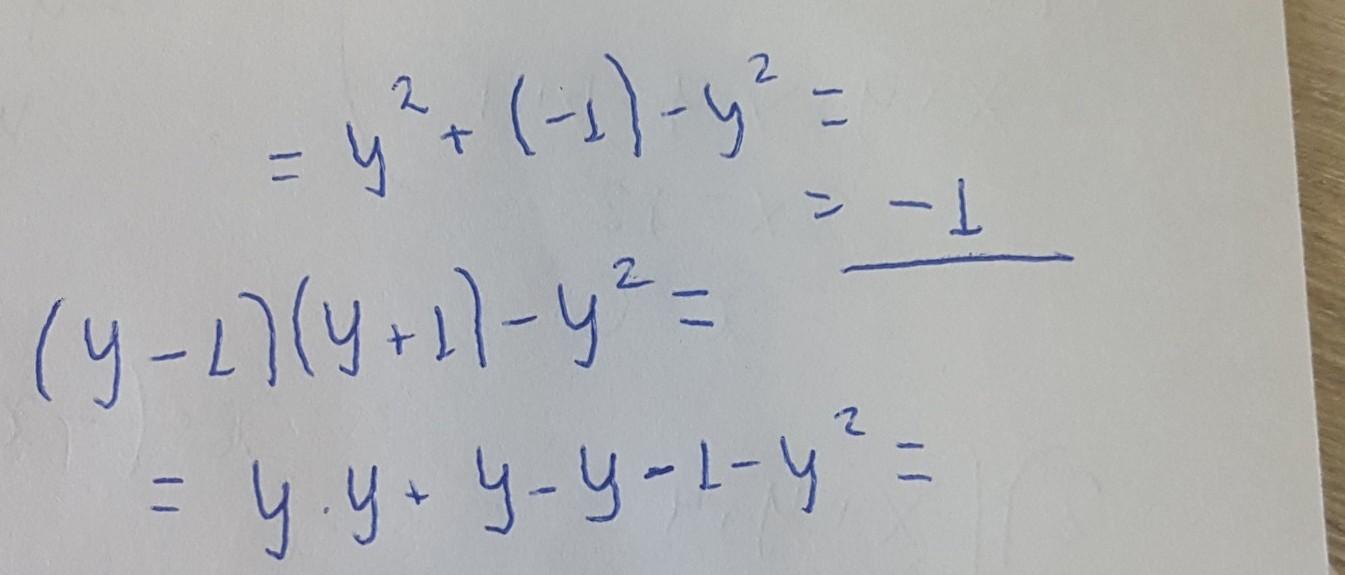 = y² + (-1) - y² =
= -1
(y-1)(y+1) - y² =
= y·y + y - y - 1 - y² =